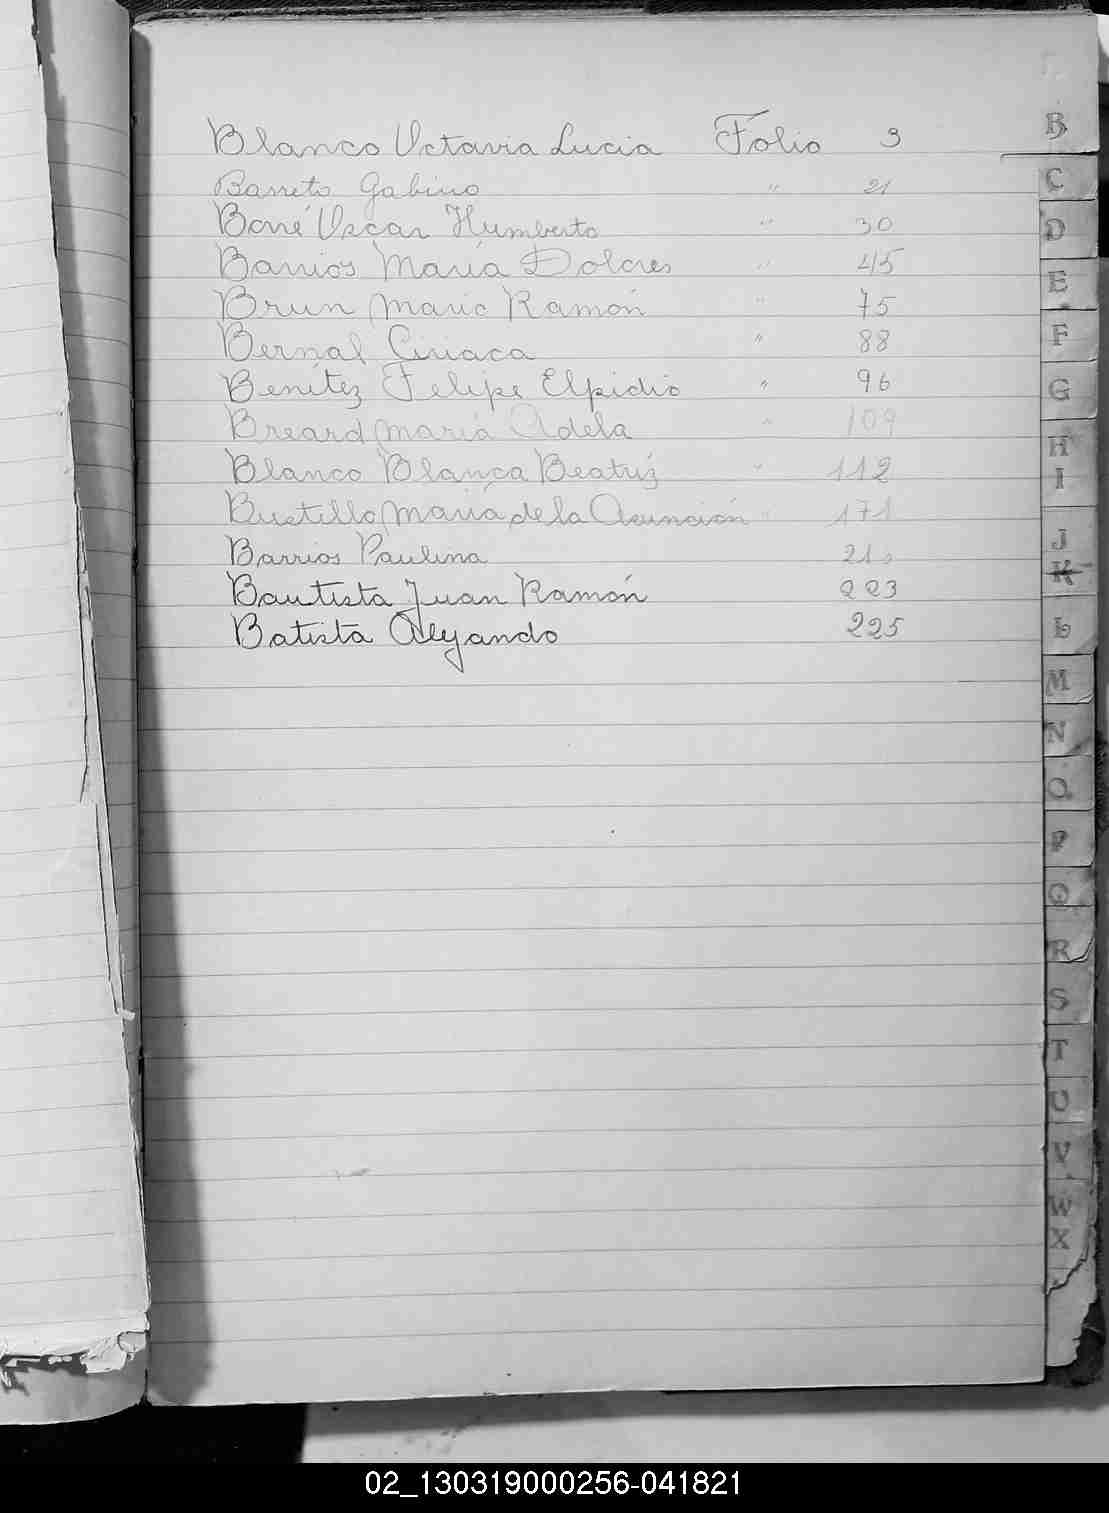 Blanco Octavia Lucia Folio 3
Barreto Gabino " 21
Borré Oscar Humberto " 30
Barrios María Dolores " 45
Brun Mario Ramón " 75
Bernal Ciriaca " 88
Benítez Felipe Elpidio " 96
Breard María Adela " 109
Blanco Blanca Beatriz " 112
Bustillo María de la Asunción " 171
Barrios Paulina 210
Bautista Juan Ramón 223
Batista Alejando 225
B
C
D
E
F
G
H
I
J
K
L
M
N
O
P
Q
R
S
T
U
V
W
X
02_130319000256-041821